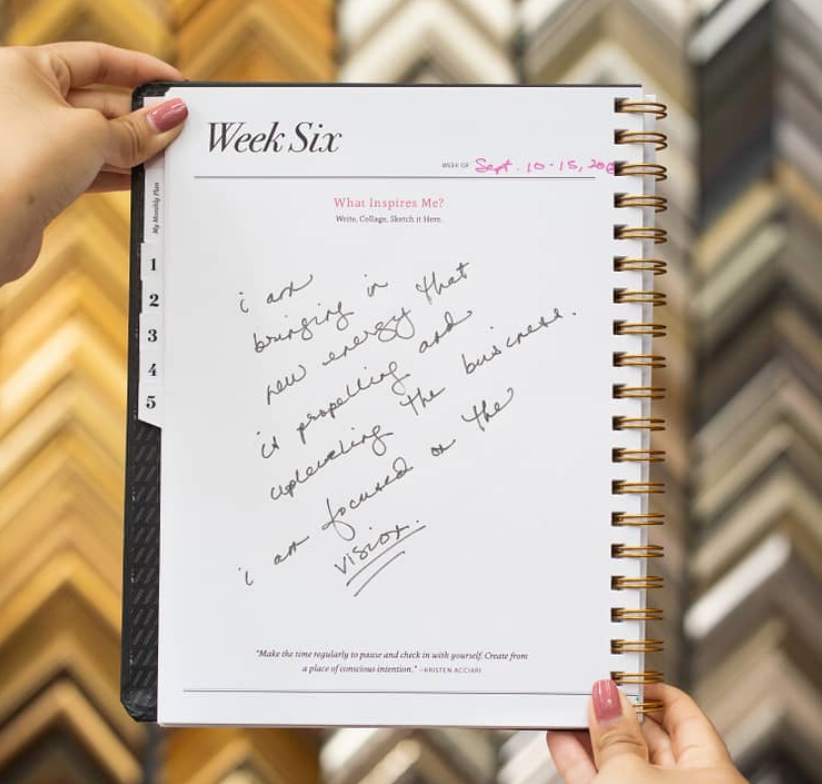 Week Six
WEEK OF Sept. 10-15, 20
My Monthly Plan
What Inspires Me?
Write, Collage, Sketch it Here.
1
2
3
4
5
i am
bringing in
new energy that
is propelling and
upleveling the business.
i am focused on the
vision.
"Make the time regularly to pause and check in with yourself. Create from
a place of conscious intention." —KRISTEN ACCIARI